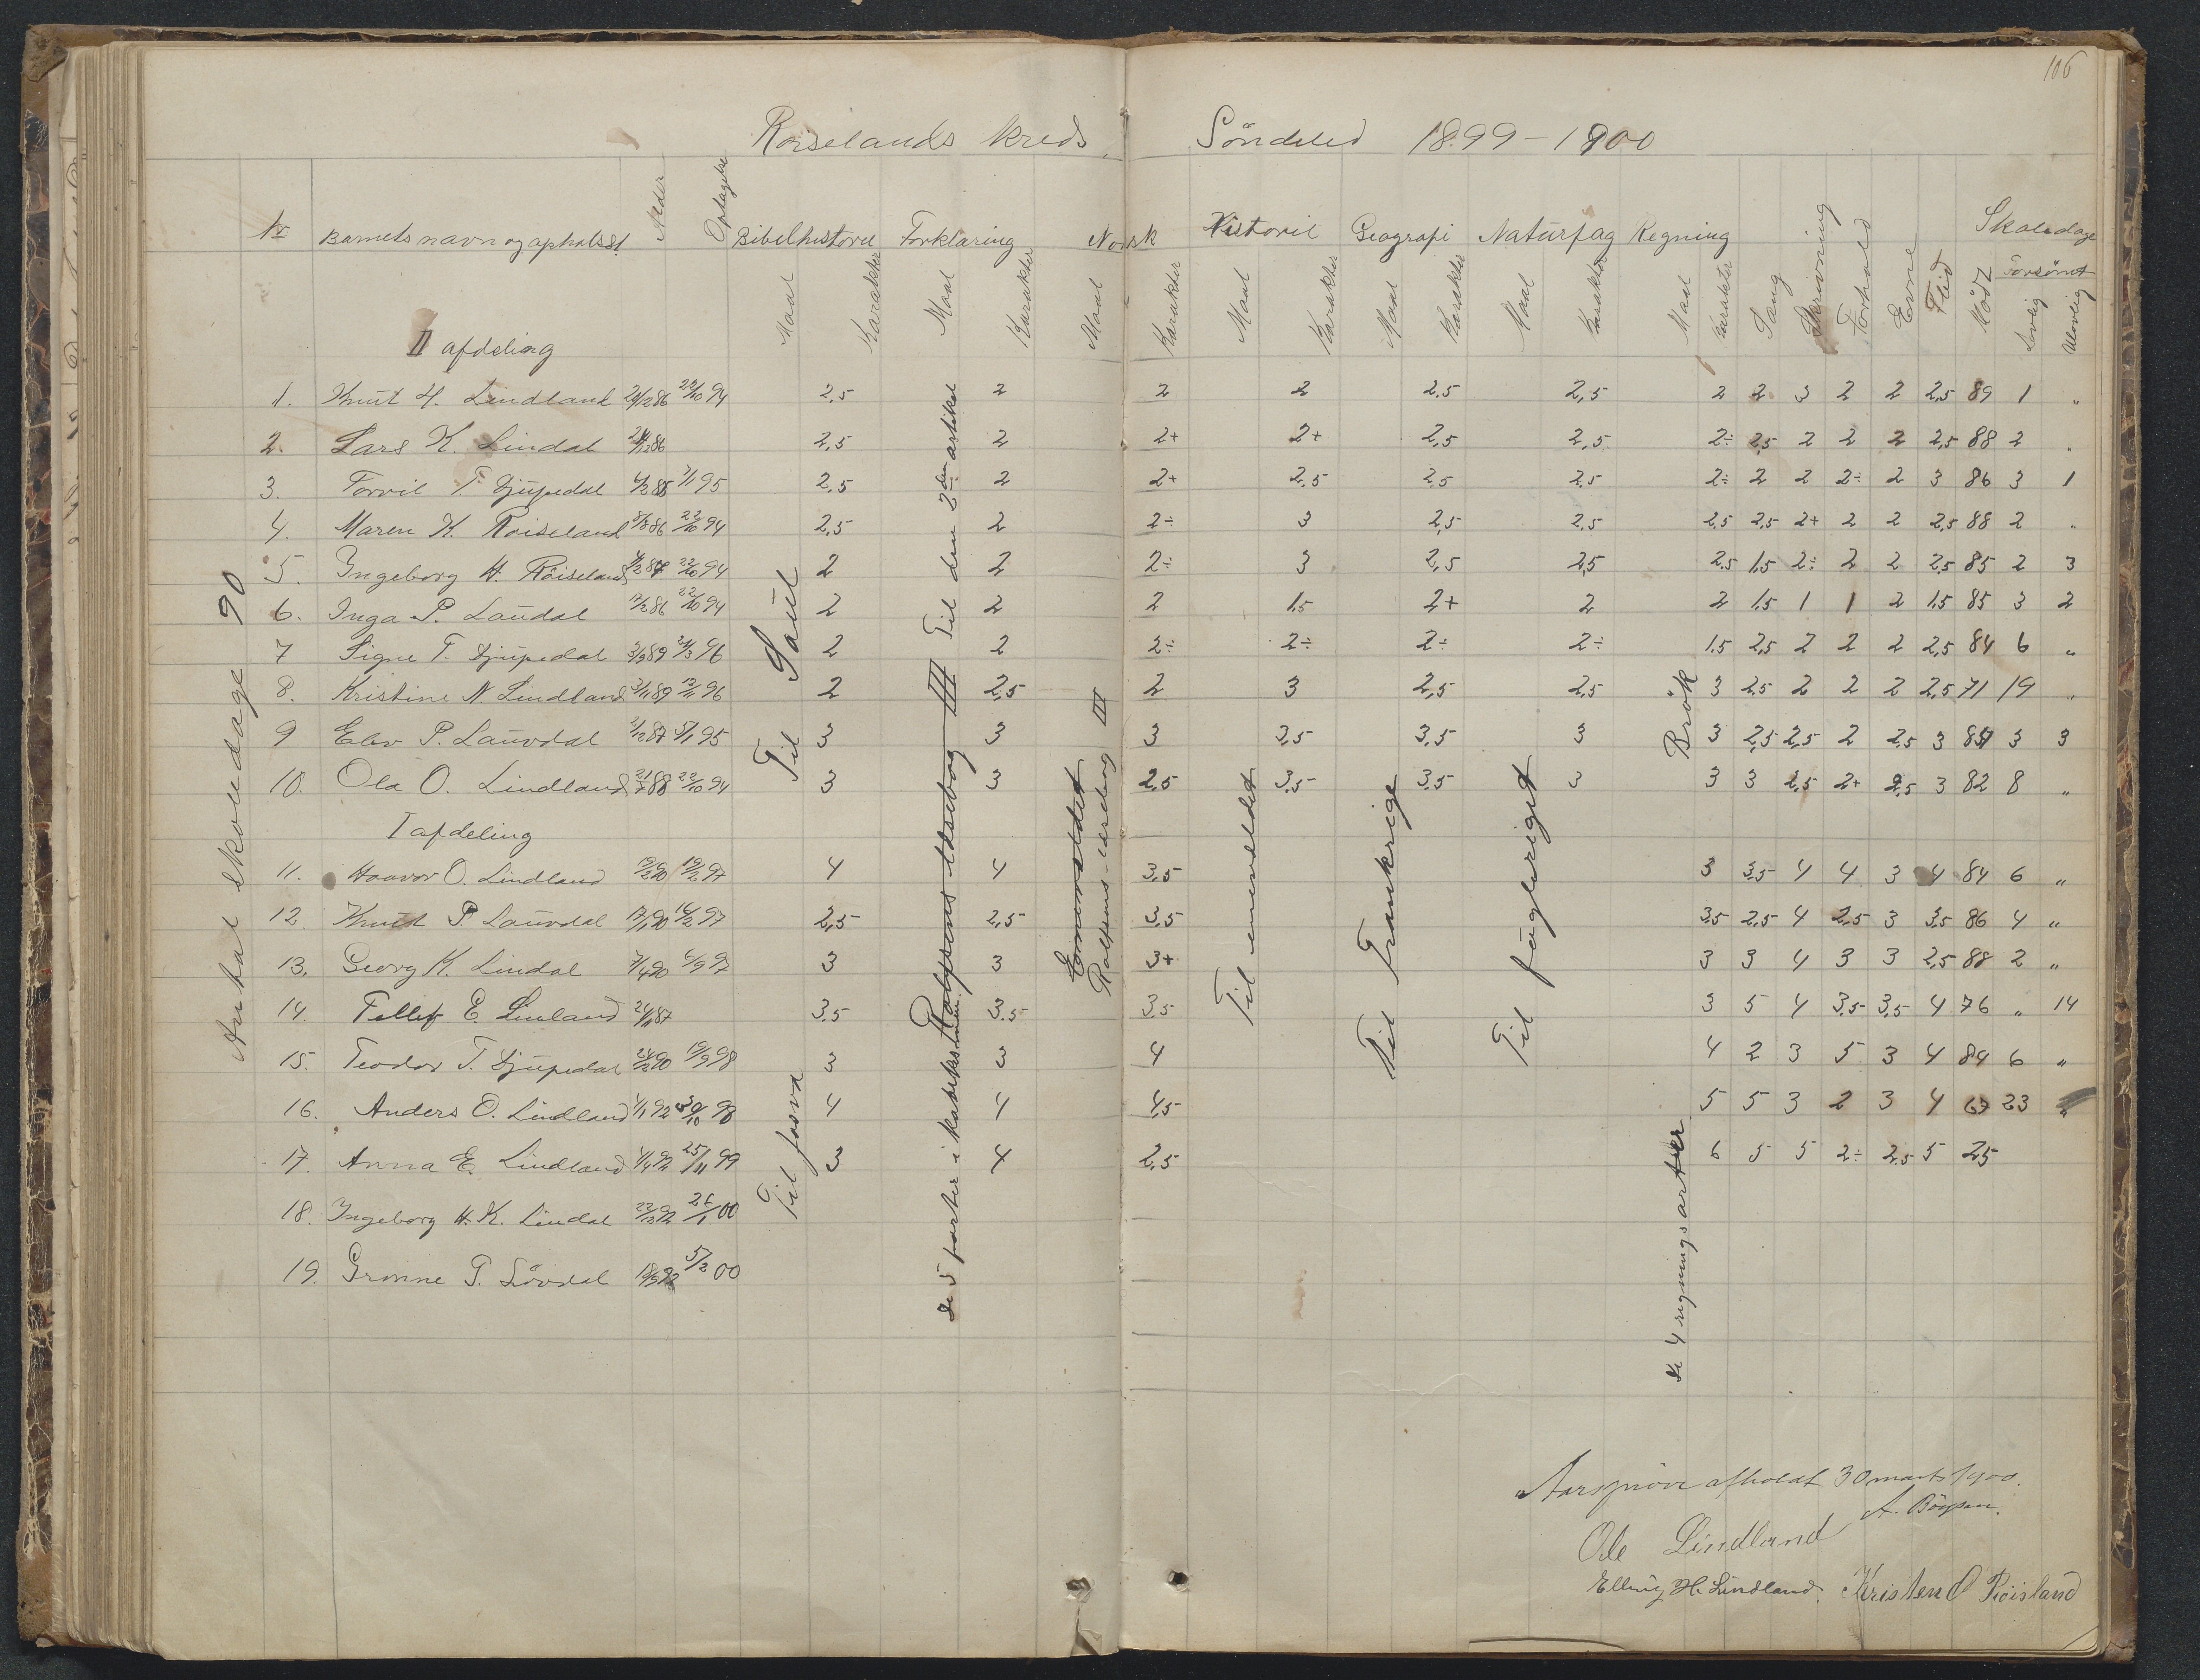 106
Roiselands kreds. Söndeled 1899-1900
Nr Barnets navn og opholdsst. Alder Optagelse Bibelhistorie Forklaring Norsk Historie Geografi Naturfag Regning Sang Skrivning Forhold Evne Flid Mödt Skoledage
Forsömt
Maal Karakter Maal Karakter Maal Karakter Maal Karakter Maal Karakter Maal Karakter Maal Karakter Lovlig Ulovlig
II afdeling
1. Knut H. Lindland 22/10 94 2,5 2 2 2 2.5 2,5 2 2 3 2 2 2,5 89 1 "
2. Lars K. Lindal 2,5 2 2+ 2+ 2,5 2,5 2÷ 2,5 2 2 2 2,5 88 2 "
3. Torvil T. Djupedal 95 2,5 2 2+ 2,5 2,5 2,5 2÷ 2 2 2÷ 2 3 86 3 1
4. Maren K. Roiseland 22/10 94 2,5 2 2÷ 3 2,5 2,5 2,5 2,5 2+ 2 2 2,5 88 2 "
5. Ingeborg H. Röiseland 22/10 94 2 2 2÷ 3 2,5 2,5 2,5 1,5 2÷ 2 2 2,5 85 2 3
6. Inga P. Laudal 22/10 94 2 2 2 1,5 2+ 2 2 1,5 1 1 2 1,5 85 3 2
7 Signe T. Djupedal 96 2 2 2÷ 2÷ 2÷ 2÷ 1,5 2,5 2 2 2 2,5 84 6 "
8. Kristine N. Lindland 96 2 2,5 2 3 2,5 2,5 3 2,5 2 2 2 2,5 71 19 "
9 Elev P. Lauvdal 95 3 3 3 3,5 3,5 3 3 2,5 2,5 2 2,5 3 3 3
10. Ola O. Lindland 22/10 94 3 3 2,5 3,5 3,5 3 3 3 2,5 2+ 2,5 3 82 8 "
I afdeling
11. Haavor O. Lindland 19/2 97 4 4 3,5 3 3,5 4 4 3 4 84 6 "
12. Knut P. Lauvdal 97 2,5 2,5 3,5 3,5 2,5 4 2,5 3 3,5 86 4 "
13. Georg K. Lindal 7/4 90 97 3 3 3+ 3 3 4 3 3 2,5 88 2 "
14. Tellef E. Linland 3.5 3.5 3,5 3 5 4 3,5 3,5 4 76 " 14
15. Teodor T. Djupedal 98 3 3 4 4 2 3 5 3 4 84 6 "
16. Anders O. Lindland 98 4 4 4,5 5 5 3 2 3 4 67 23 "
17. Anna E. Lindland 25/11 99 3 4 2,5 6 5 5 2÷ 2,5 5 25
18. Ingeborg H. K. Lindal 26/1 00
19. Gronne P. Lövdal 5/2 00
Antal skoledage 90
Til Saul
Til den 2den artikel
Rolfsens læsebog III
Rolfsens læsebog III
Til enevældet
Til Frankrige
Til fugleriget
Brök
Til
de 5 parter i katekismen.
de 4 regningsarter
Aarspröve afholdt 30 marts 1900.
Ole Lindland
Elling H. Lindland. Kristen O Röisland